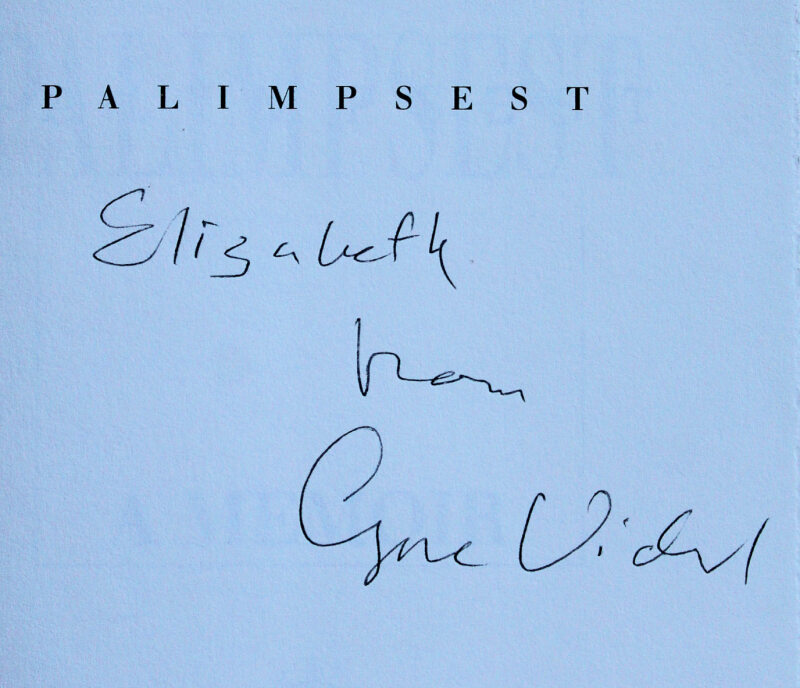 PALIMPSEST
Elizabeth
from
Gore Vidal
A MEMOIR